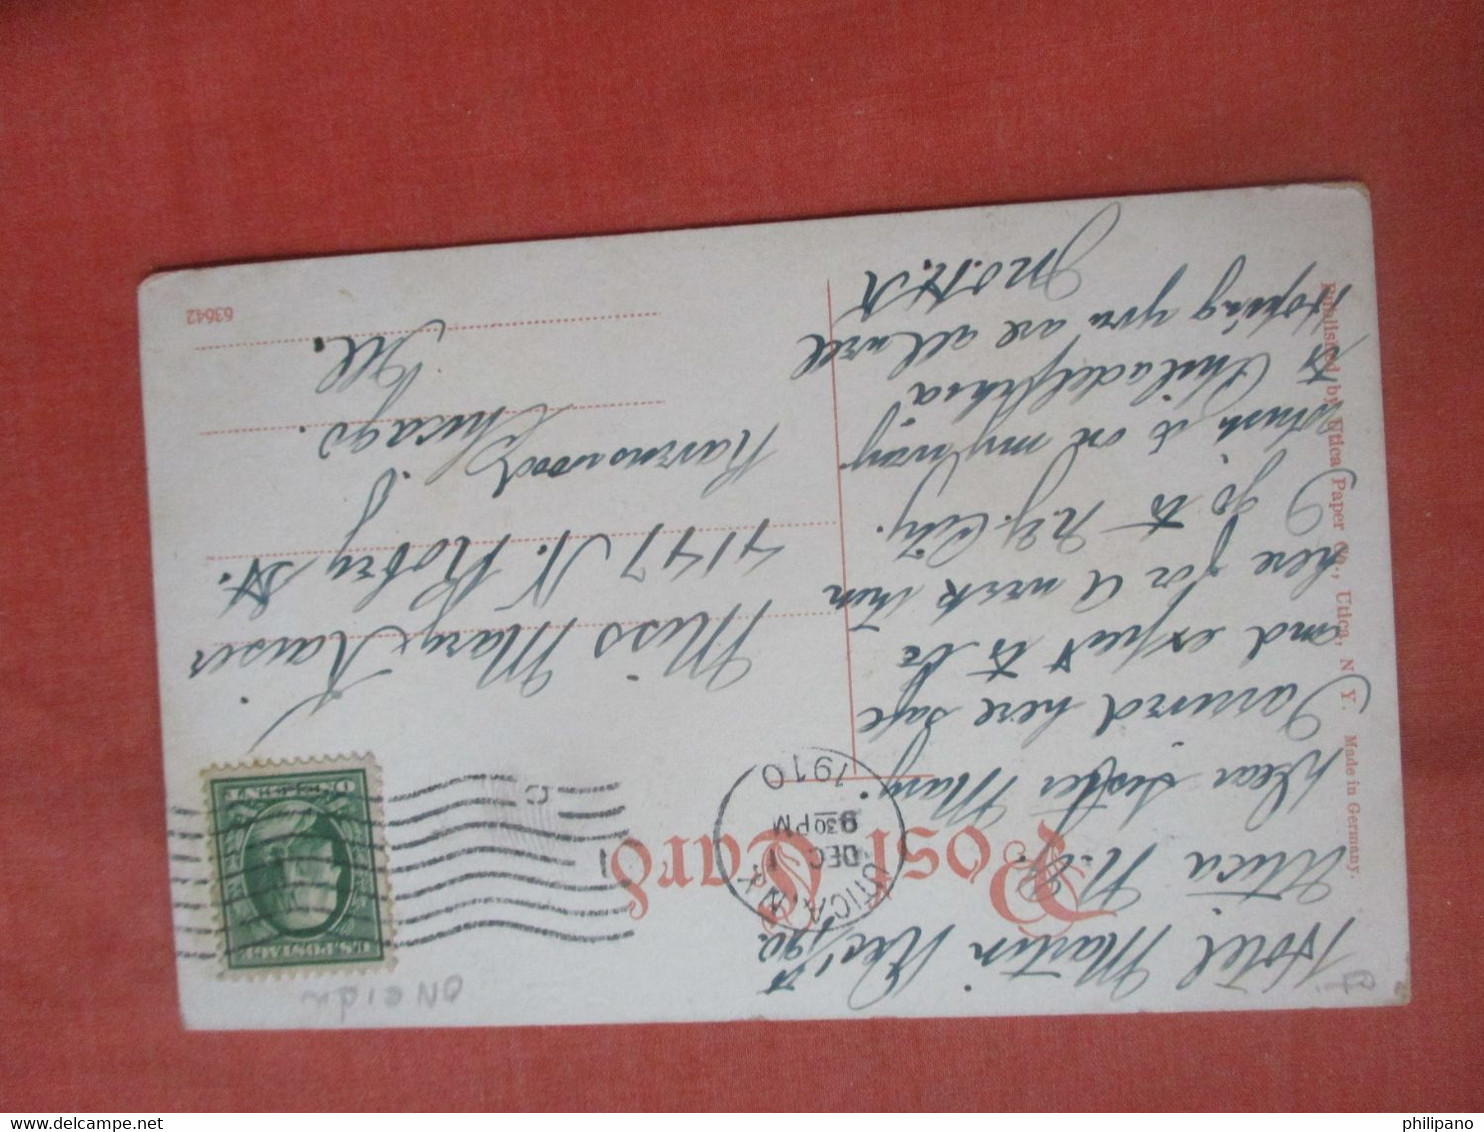 Hotel Martin Dec 1st
Utica N.Y.
Dear Sister Mary
I arrived here safe
and expect to be
here for a week then
I go to N.Y. City.
which is on my way
to Philadelphia
Hoping you are all well
Post Card
UTICA, N.Y.
DEC 1
9 30 PM
1910
U.S. POSTAGE
Miss Mary Kaiser
4147 N. Robey St.
Ravenswood
Chicago.
Ill.
63642
Published by Utica Paper Co., Utica, N. Y. Made in Germany.
ONEIDA
philipano